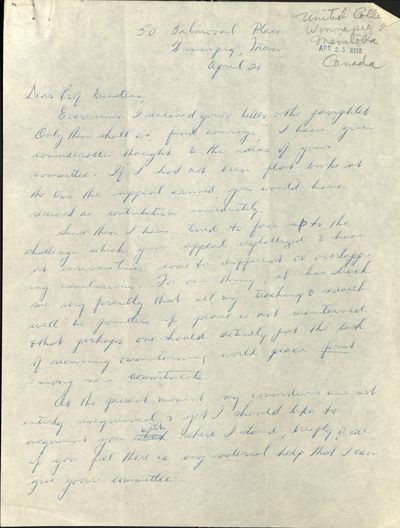 United Colle
Winnipeg
Manitoba
APR 25 RECD
Canada
50 Balmoral Place
Winnipeg, Man.
April 21
Dear Prof Einstein,
Ever since I received your letter & the pamphlet
"Only then shall we find courage" I have given
considerable thought to the ideas of your
committee. If I had not been flat broke at
the time the appeal arrived you would have
received a contribution immediately.
Since then I have tried to face up to the
challenge which your appeal & have
at various times come to different or overlapp-
ing conclusions. For one thing, it has struck
me very forcibly that all my teaching & research
will be pointless if peace is not maintained
& that perhaps one should actively put the task
of securing & maintaining world peace first
among one's commitments.
At the present moment my convictions are not
entirely & yet I should like to
acquaint you with where I stand, briefly, & see
if you feel there is any material help that I can
give your committee.